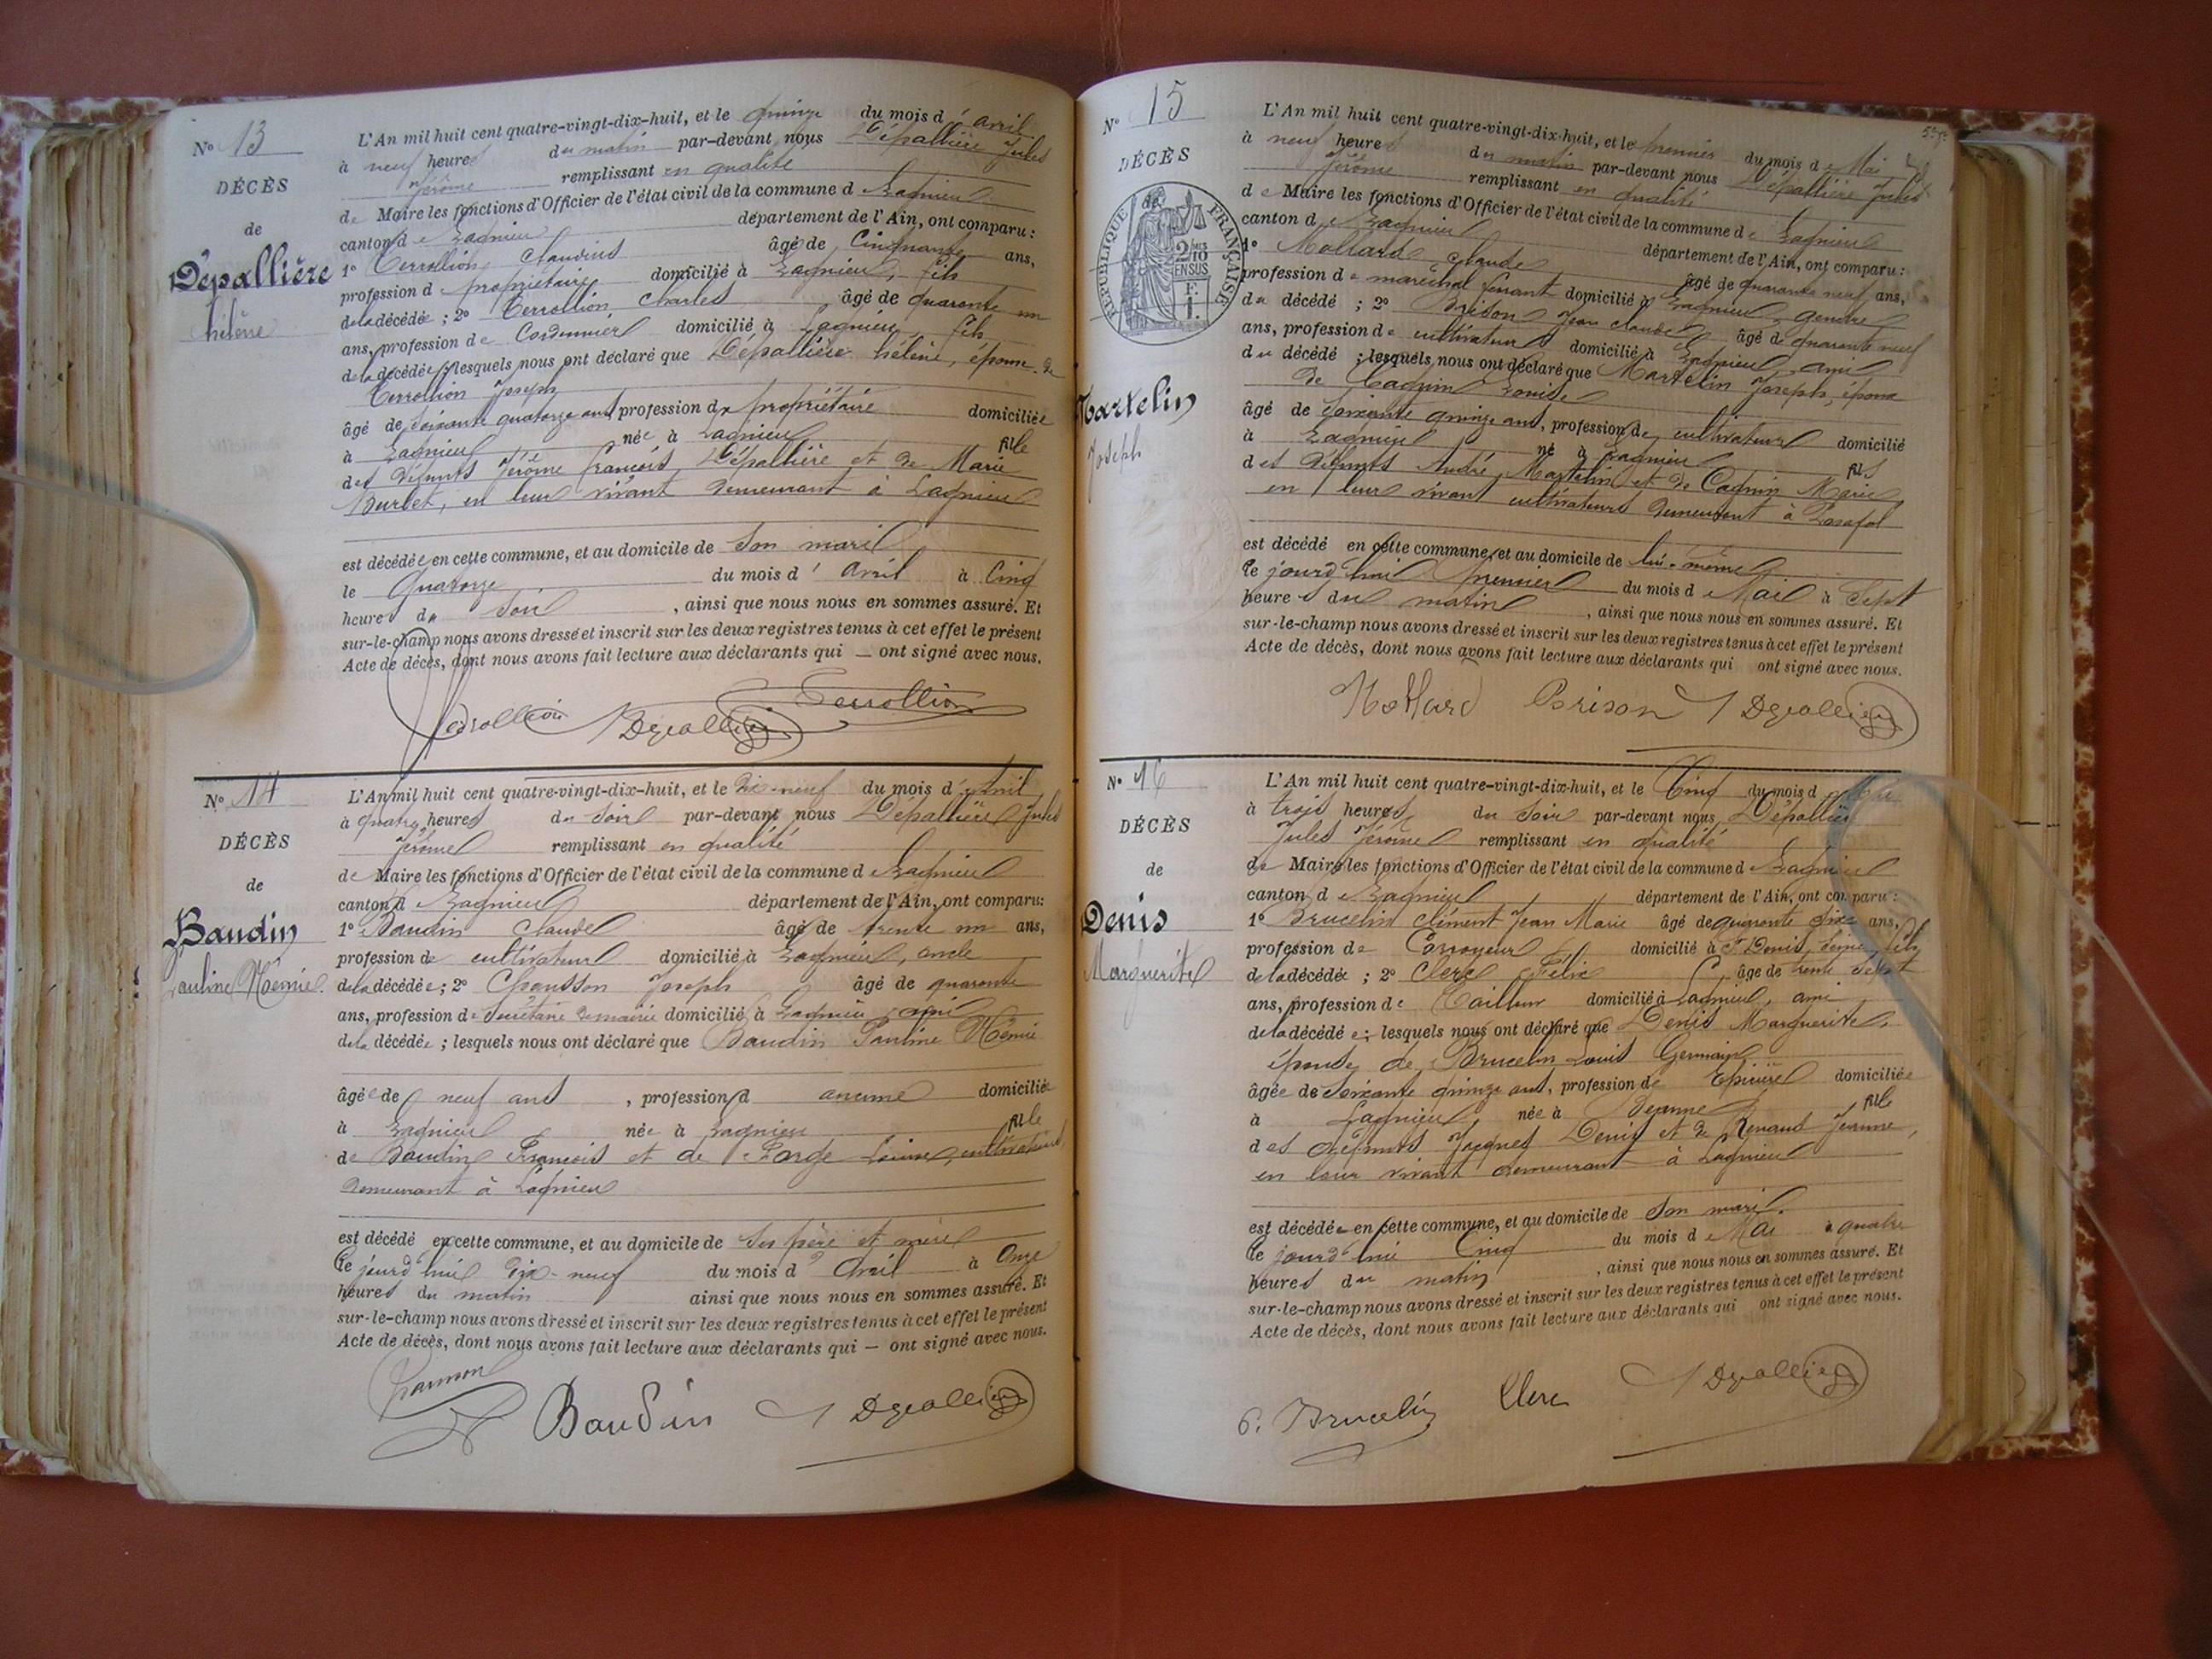 N° 13
DÉCÈS
de
Dépallière
hélène
L'An mil huit cent quatre-vingt-dix-huit, et le quinze du mois d'avril
à neuf heures du matin par-devant nous Dépallière Jules
Jérôme remplissant en qualité
de Maire les fonctions d'Officier de l'état civil de la commune de Lagnieu
canton de Lagnieu département de l'Ain, ont comparu :
1° Terrollion Claudius âgé de Cinquante ans,
profession d propriétaire domicilié à Lagnieu, fils
de la décédée ; 2° Terrollion Charles âgé de quarante un
ans, profession de Cordonnier domicilié à Lagnieu, fils
de la décédée ; lesquels nous ont déclaré que Dépallière hélène, épouse de
Terrollion Joseph
âgé de soixante quatorze ans, profession de propriétaire domiciliée
à Lagnieu née à Lagnieu fille
des défunts Jérôme françois Dépallière et de Marie
Burbet, en leur vivant demeurant à Lagnieu
est décédée en cette commune, et au domicile de son mari
le quatorze du mois d'avril à Cinq
heures du soir , ainsi que nous nous en sommes assuré. Et
sur-le-champ nous avons dressé et inscrit sur les deux registres tenus à cet effet le présent
Acte de décès, dont nous avons fait lecture aux déclarants qui — ont signé avec nous.
Terrollion
N° 14
DÉCÈS
de
Baudin
Pauline Noémie.
L'An mil huit cent quatre-vingt-dix-huit, et le dix-neuf du mois d'Avril
à quatre heures du soir par-devant nous Dépallière Jules
Jérôme remplissant en qualité
de Maire les fonctions d'Officier de l'état civil de la commune de Lagnieu
canton d Lagnieu département de l'Ain, ont comparu :
1° Baudin Claude âgé de trente un ans,
profession de cultivateur domicilié à Lagnieu, oncle
de la décédée ; 2° Chausson Joseph âgé de quarante
ans, profession de Secrétaire de mairie domicilié à Lagnieu ami
de la décédée ; lesquels nous ont déclaré que Baudin Pauline Noémie
âgée de neuf ans , profession d aucune domiciliée
à Lagnieu née à Lagnieu fille
de Baudin François et de cultivateurs
demeurant à Lagnieu
est décédé en cette commune, et au domicile de ses père et mère
Ce jourd'hui dix-neuf du mois d'Avril à Onze
heures du matin ainsi que nous nous en sommes assuré. Et
sur-le-champ nous avons dressé et inscrit sur les deux registres tenus à cet effet le présent
Acte de décès, dont nous avons fait lecture aux déclarants qui — ont signé avec nous.
Baudin
N° 15
DÉCÈS
de
RÉPUBLIQUE FRANÇAISE
2/10 EN SUS
Martelin
Joseph
L'An mil huit cent quatre-vingt-dix-huit, et le premier du mois de Mai
à neuf heures du matin par-devant nous Dépallière Jules
Jérôme remplissant en qualité
de Maire les fonctions d'Officier de l'état civil de la commune de Lagnieu
canton de Lagnieu département de l'Ain, ont comparu :
1° Mollard Claude âgé de quarante neuf ans,
profession de maréchal ferrant domicilié à Lagnieu, gendre
du décédé ; 2° Brison Jean Claude âgé de quarante neuf
ans, profession de cultivateur domicilié à Lagnieu, ami
du décédé ; lesquels nous ont déclaré que Martelin Joseph, époux
de Cagnin Louise
âgé de soixante quinze ans, profession de cultivateur domicilié
à Lagnieu né à Lagnieu fils
des défunts André Martelin et de Cagnin Marie
en leur vivant cultivateurs demeurant à Posafol
est décédé en cette commune, et au domicile de lui-même
Ce jourd'hui premier du mois de Mai à Sept
heures du matin , ainsi que nous nous en sommes assuré. Et
sur-le-champ nous avons dressé et inscrit sur les deux registres tenus à cet effet le présent
Acte de décès, dont nous avons fait lecture aux déclarants qui ont signé avec nous.
Mollard Brison
N° 16
DÉCÈS
de
Denis
Marguerite
L'An mil huit cent quatre-vingt-dix-huit, et le Cinq du mois d
à trois heures du soir par-devant nous Dépallière
Jules Jérôme remplissant en qualité
de Maire les fonctions d'Officier de l'état civil de la commune de Lagnieu
canton de Lagnieu département de l'Ain, ont comparu :
1° Brucelin Clément Jean Marie âgé de quarante ans,
profession de Corroyeur domicilié à St Denis, Seine, fils
de la décédée ; 2° Clerc Félix âgé de trente sept
ans, profession de Tailleur domicilié à Lagnieu, ami
de la décédée ; lesquels nous ont déclaré que Denis Marguerite,
épouse de Brucelin Louis Germain
âgée de soixante quinze ans, profession de Epicière domiciliée
à Lagnieu née à fille
des défunts Jacques Denis et de Renaud Jeanne,
en leur vivant demeurant à Lagnieu
est décédée en cette commune, et au domicile de son mari.
Ce jourd'hui Cinq du mois de Mai à quatre
heures du matin , ainsi que nous nous en sommes assuré. Et
sur-le-champ nous avons dressé et inscrit sur les deux registres tenus à cet effet le présent
Acte de décès, dont nous avons fait lecture aux déclarants qui ont signé avec nous.
Brucelin Clerc